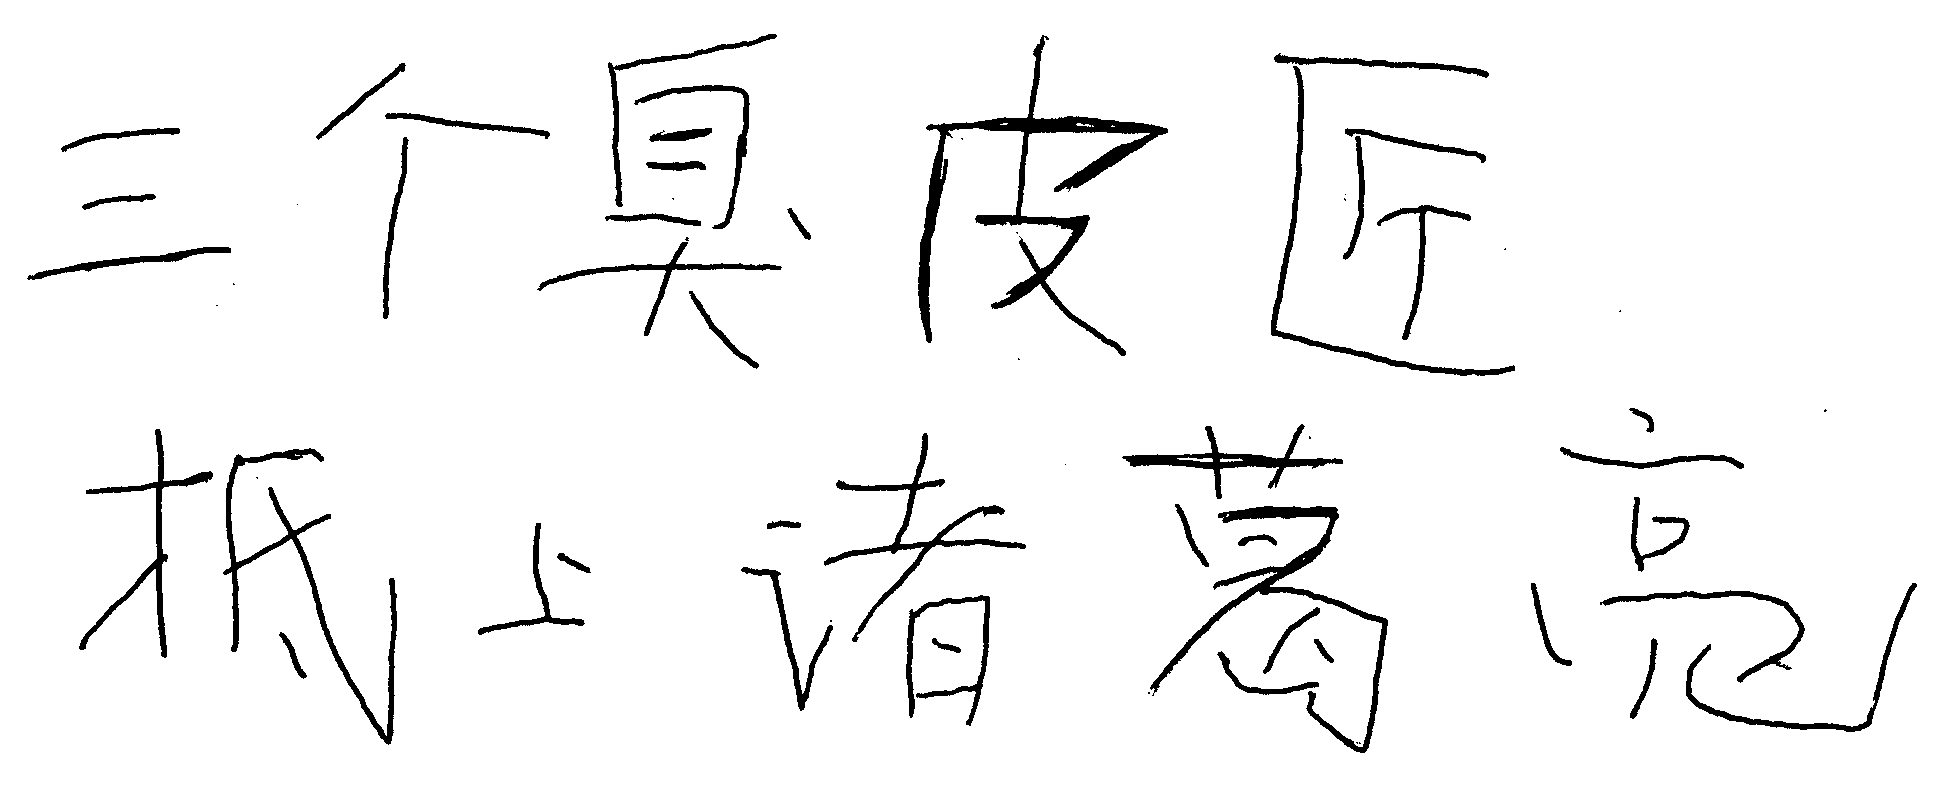 三个臭皮匠
抵上诸葛亮